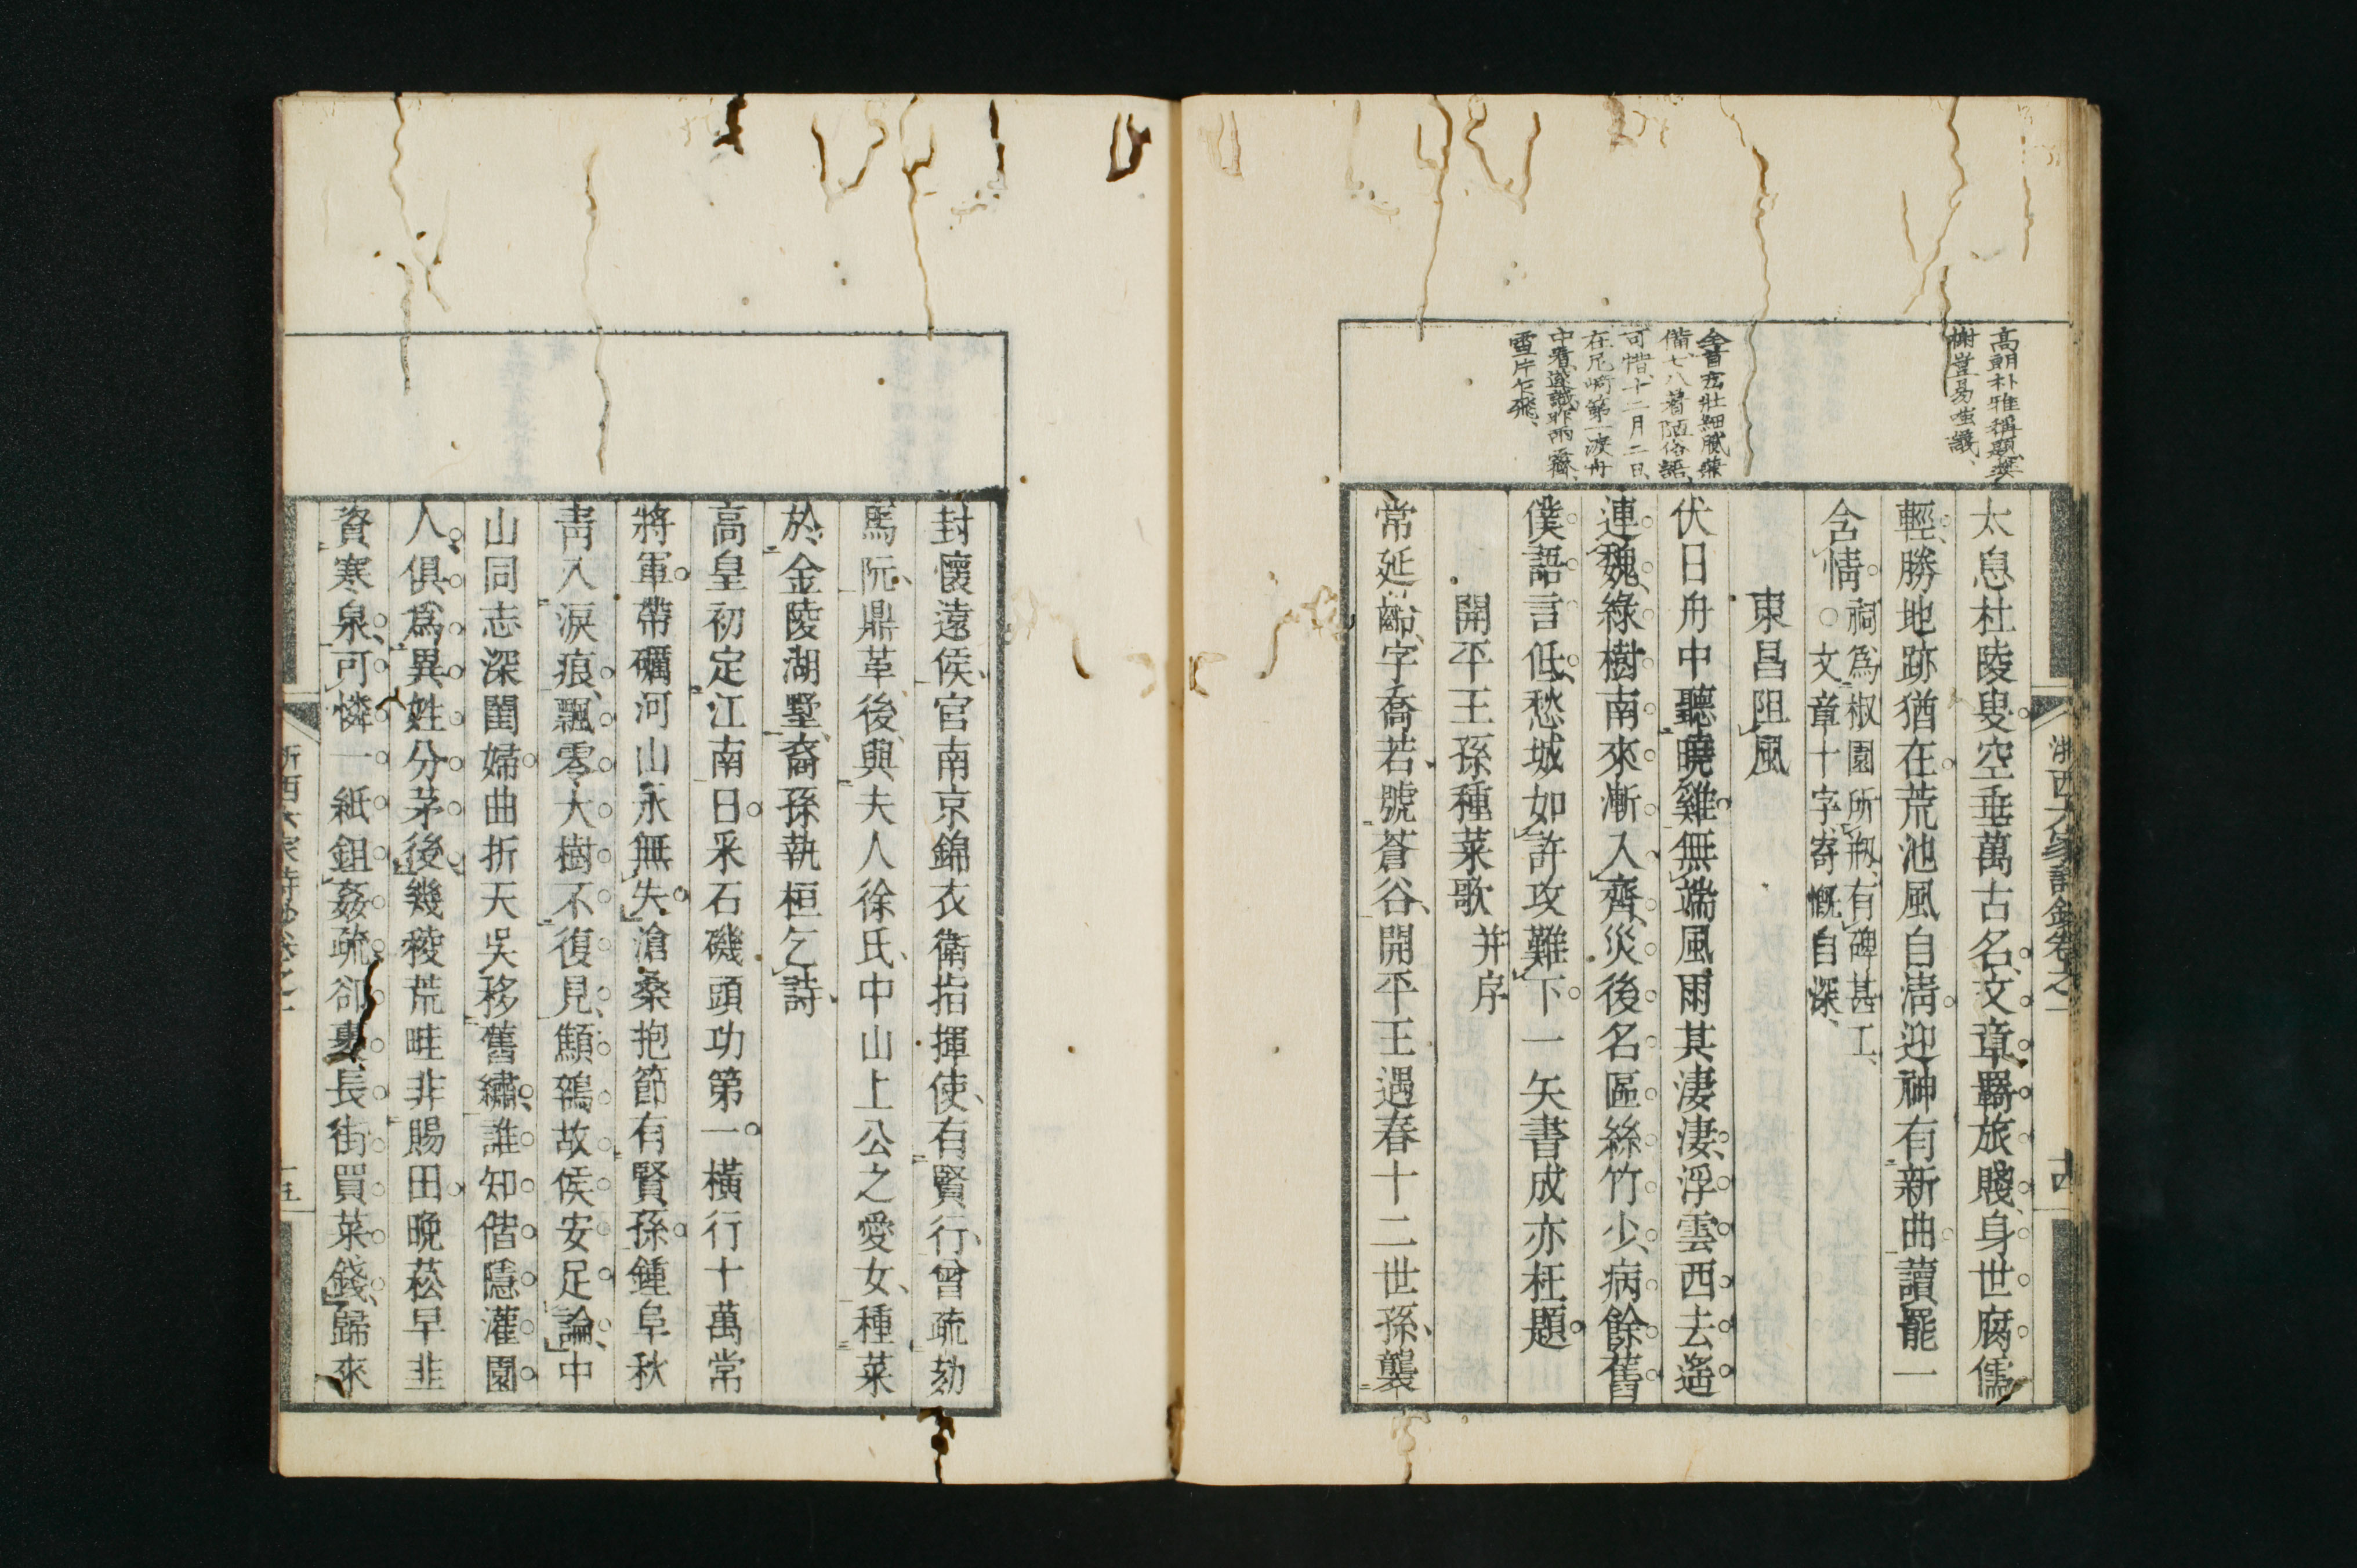 高朗朴雅稱題櫫
榭豈易嗤議
太息杜陵叟空垂萬古名文章羇旅賤身世腐儒
輕勝地跡猶在荒池風自淸迎神有新曲讀罷一
含情
祠爲椒園所刱有碑甚工
○文章十字寄慨自深
東昌阻風
伏日舟中聽曉雞無端風雨其淒淒浮雲西去遙
連魏綠樹南來漸入齊災後名區絲竹少病餘舊
僕語言低愁城如許攻難下一矢書成亦枉題
開平王孫種菜歌 并序
常延齡字喬若號蒼谷開平王遇春十二世孫襲
可惜十二月二日
在尼崎第一渡舟
雪片乍飛
浙西六家詩鈔卷之一
十四
封懷遠侯官南京錦衣衛指揮使有賢行曾疏劾
馬阮鼎革後與夫人徐氏中山上公之愛女種菜
於金陵湖墅裔孫執桓乞詩
高皇初定江南日采石磯頭功第一橫行十萬常
將軍帶礪河山永無失滄桑抱節有賢孫鍾阜秋
靑入淚痕飄零大樹不復見顦鵨故侯安足論中
山同志深閨婦曲折天吳移舊繡誰知偕隱灌園
人俱爲異姓分茅後幾稜荒畦非賜田晚菘早韭
資寒泉可憐一紙鉏姦疏卻裹長街買菜錢歸來
浙西六家詩鈔卷之一
十五